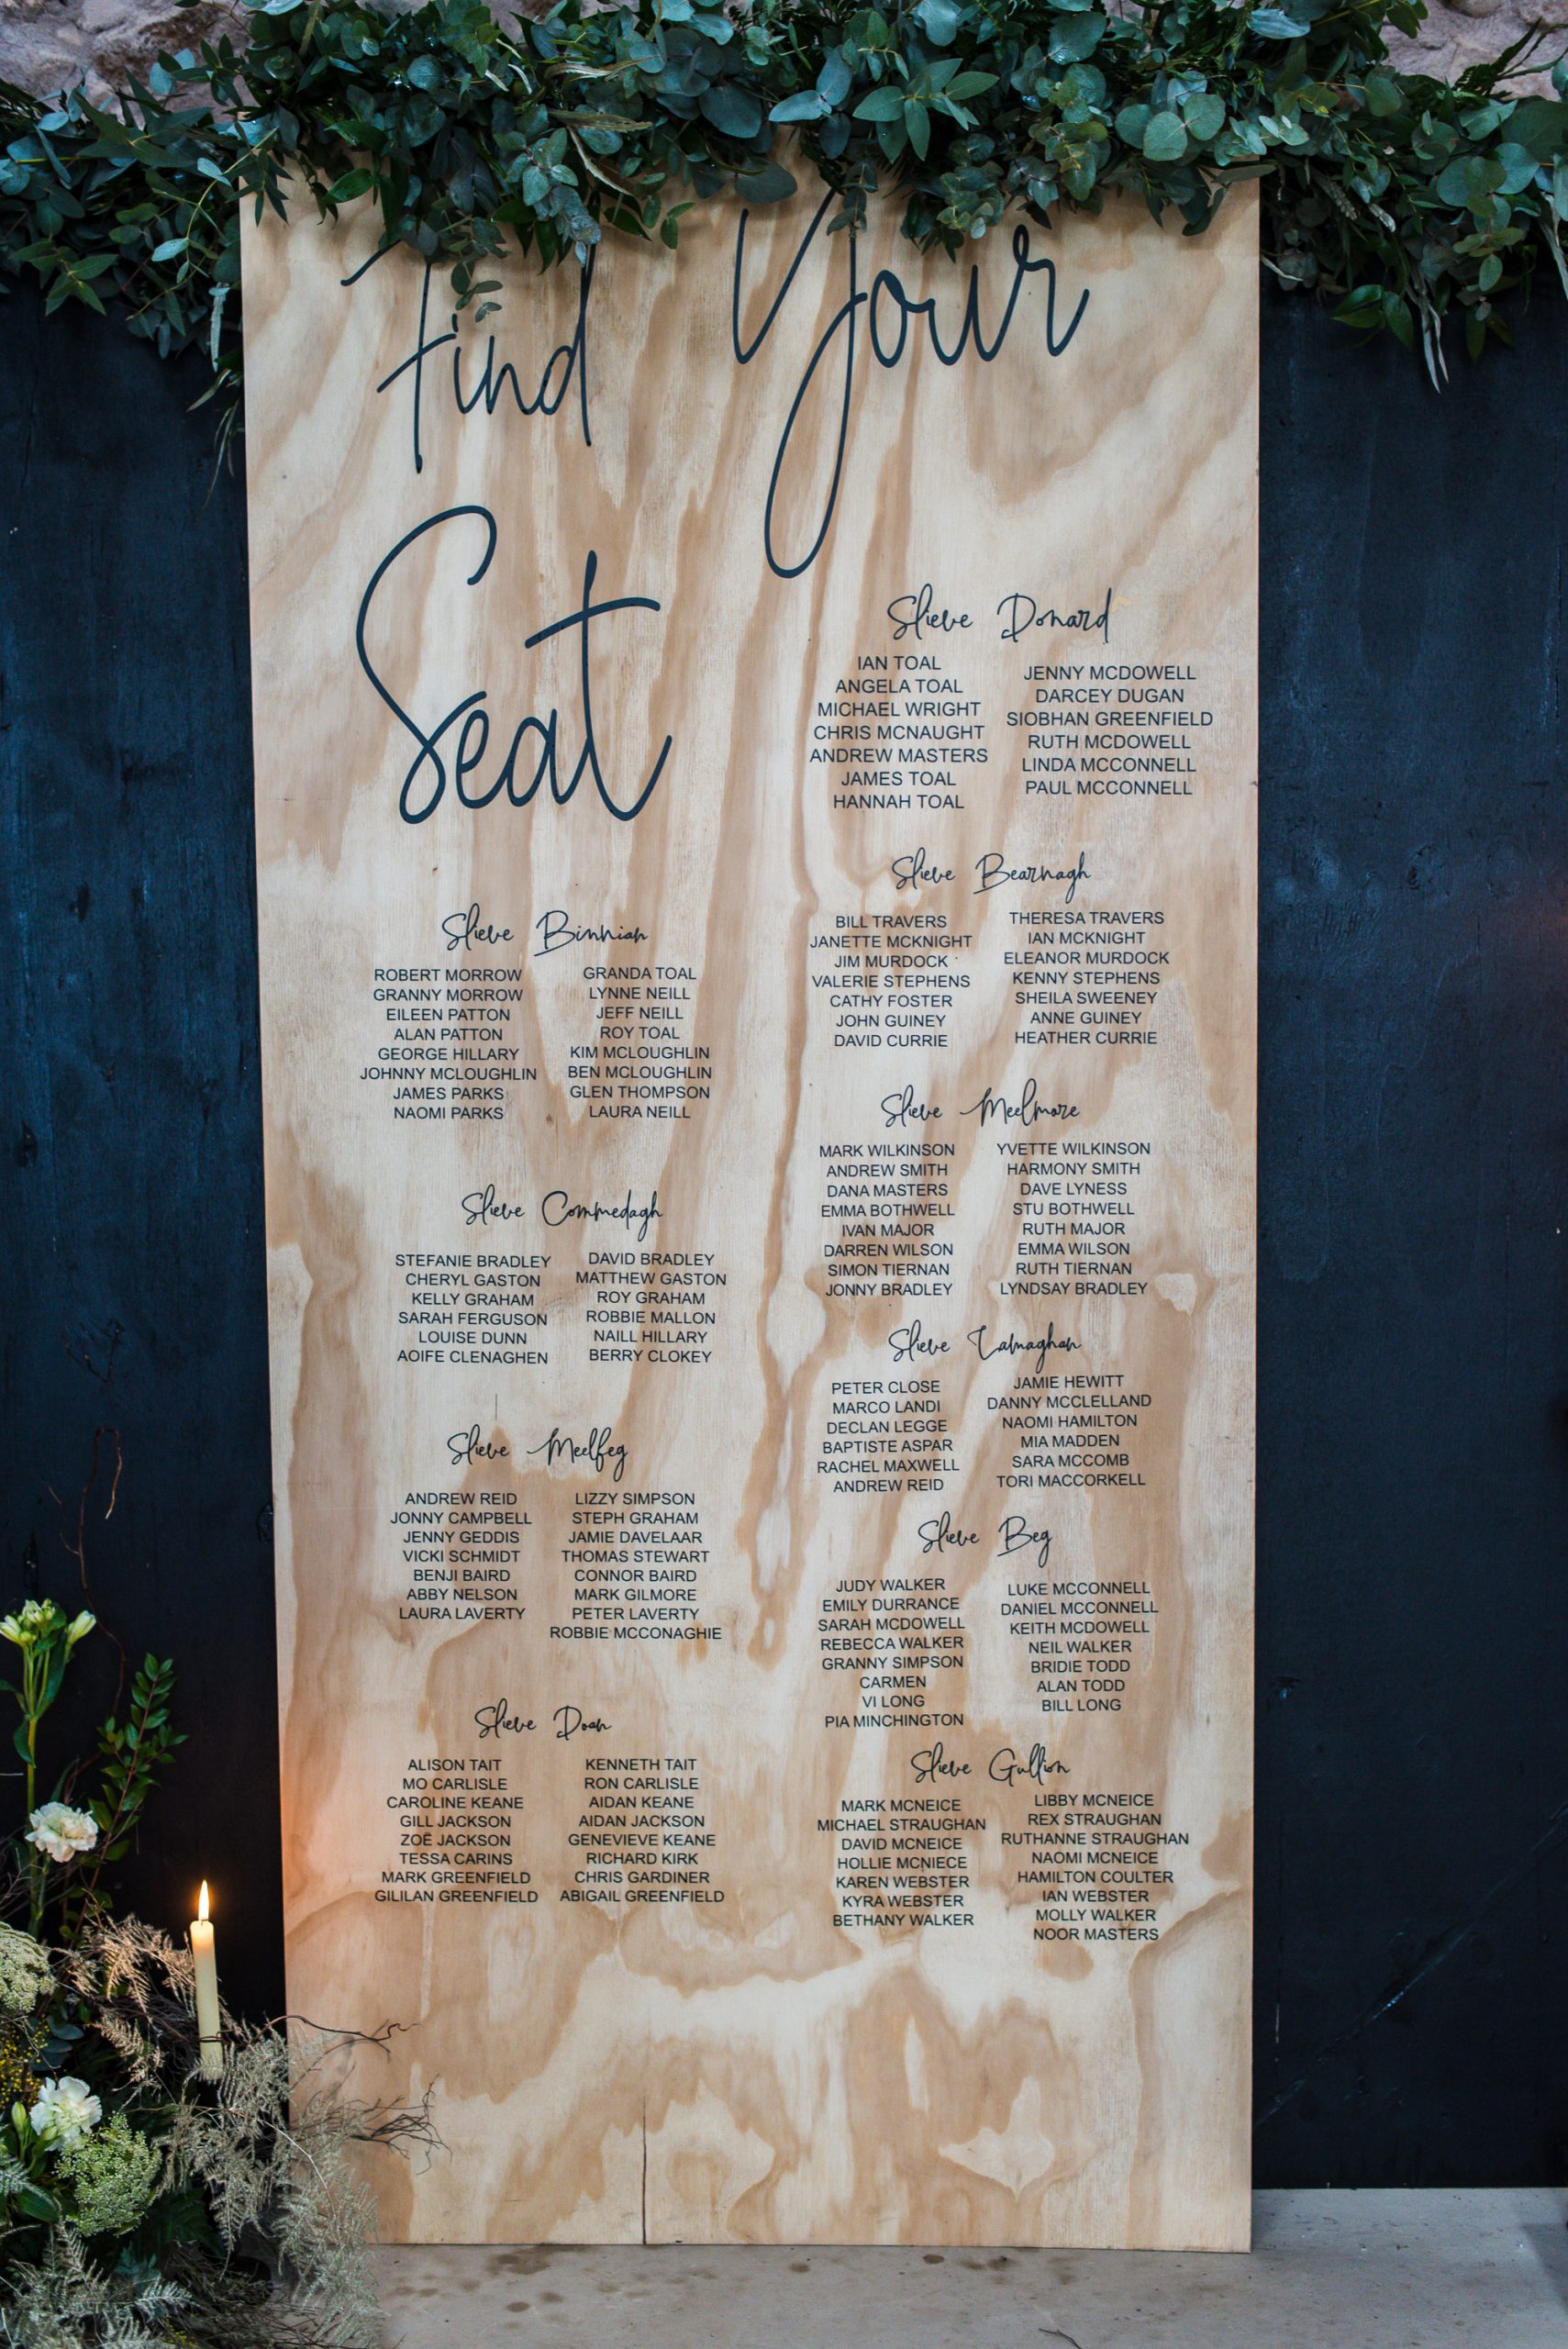 Find Your
Seat
Slieve Donard
IAN TOAL
ANGELA TOAL
MICHAEL WRIGHT
CHRIS MCNAUGHT
ANDREW MASTERS
JAMES TOAL
HANNAH TOAL
JENNY MCDOWELL
DARCEY DUGAN
SIOBHAN GREENFIELD
RUTH MCDOWELL
LINDA MCCONNELL
PAUL MCCONNELL
Slieve Binnian
ROBERT MORROW
GRANNY MORROW
EILEEN PATTON
ALAN PATTON
GEORGE HILLARY
JOHNNY MCLOUGHLIN
JAMES PARKS
NAOMI PARKS
GRANDA TOAL
LYNNE NEILL
JEFF NEILL
ROY TOAL
KIM MCLOUGHLIN
BEN MCLOUGHLIN
GLEN THOMPSON
LAURA NEILL
Slieve Commedagh
STEFANIE BRADLEY
CHERYL GASTON
KELLY GRAHAM
SARAH FERGUSON
LOUISE DUNN
AOIFE CLENAGHEN
DAVID BRADLEY
MATTHEW GASTON
ROY GRAHAM
ROBBIE MALLON
NAILL HILLARY
BERRY CLOKEY
Slieve Meelbeg
ANDREW REID
JONNY CAMPBELL
JENNY GEDDIS
VICKI SCHMIDT
BENJI BAIRD
ABBY NELSON
LAURA LAVERTY
LIZZY SIMPSON
STEPH GRAHAM
JAMIE DAVELAAR
THOMAS STEWART
CONNOR BAIRD
MARK GILMORE
PETER LAVERTY
ROBBIE MCCONAGHIE
Slieve Doan
ALISON TAIT
MO CARLISLE
CAROLINE KEANE
GILL JACKSON
ZOË JACKSON
TESSA CARINS
MARK GREENFIELD
GILILAN GREENFIELD
KENNETH TAIT
RON CARLISLE
AIDAN KEANE
AIDAN JACKSON
GENEVIEVE KEANE
RICHARD KIRK
CHRIS GARDINER
ABIGAIL GREENFIELD
Slieve Bearnagh
BILL TRAVERS
JANETTE MCKNIGHT
JIM MURDOCK
VALERIE STEPHENS
CATHY FOSTER
JOHN GUINEY
DAVID CURRIE
THERESA TRAVERS
IAN MCKNIGHT
ELEANOR MURDOCK
KENNY STEPHENS
SHEILA SWEENEY
ANNE GUINEY
HEATHER CURRIE
Slieve Meelmore
MARK WILKINSON
ANDREW SMITH
DANA MASTERS
EMMA BOTHWELL
IVAN MAJOR
DARREN WILSON
SIMON TIERNAN
JONNY BRADLEY
YVETTE WILKINSON
HARMONY SMITH
DAVE LYNESS
STU BOTHWELL
RUTH MAJOR
EMMA WILSON
RUTH TIERNAN
LYNDSAY BRADLEY
Slieve Lamaghan
PETER CLOSE
MARCO LANDI
DECLAN LEGGE
BAPTISTE ASPAR
RACHEL MAXWELL
ANDREW REID
JAMIE HEWITT
DANNY MCCLELLAND
NAOMI HAMILTON
MIA MADDEN
SARA MCCOMB
TORI MACCORKELL
Slieve Beg
JUDY WALKER
EMILY DURRANCE
SARAH MCDOWELL
REBECCA WALKER
GRANNY SIMPSON
CARMEN
VI LONG
PIA MINCHINGTON
LUKE MCCONNELL
DANIEL MCCONNELL
KEITH MCDOWELL
NEIL WALKER
BRIDIE TODD
ALAN TODD
BILL LONG
Slieve Gullion
MARK MCNEICE
MICHAEL STRAUGHAN
DAVID MCNEICE
HOLLIE MCNIECE
KAREN WEBSTER
KYRA WEBSTER
BETHANY WALKER
LIBBY MCNEICE
REX STRAUGHAN
RUTHANNE STRAUGHAN
NAOMI MCNEICE
HAMILTON COULTER
IAN WEBSTER
MOLLY WALKER
NOOR MASTERS